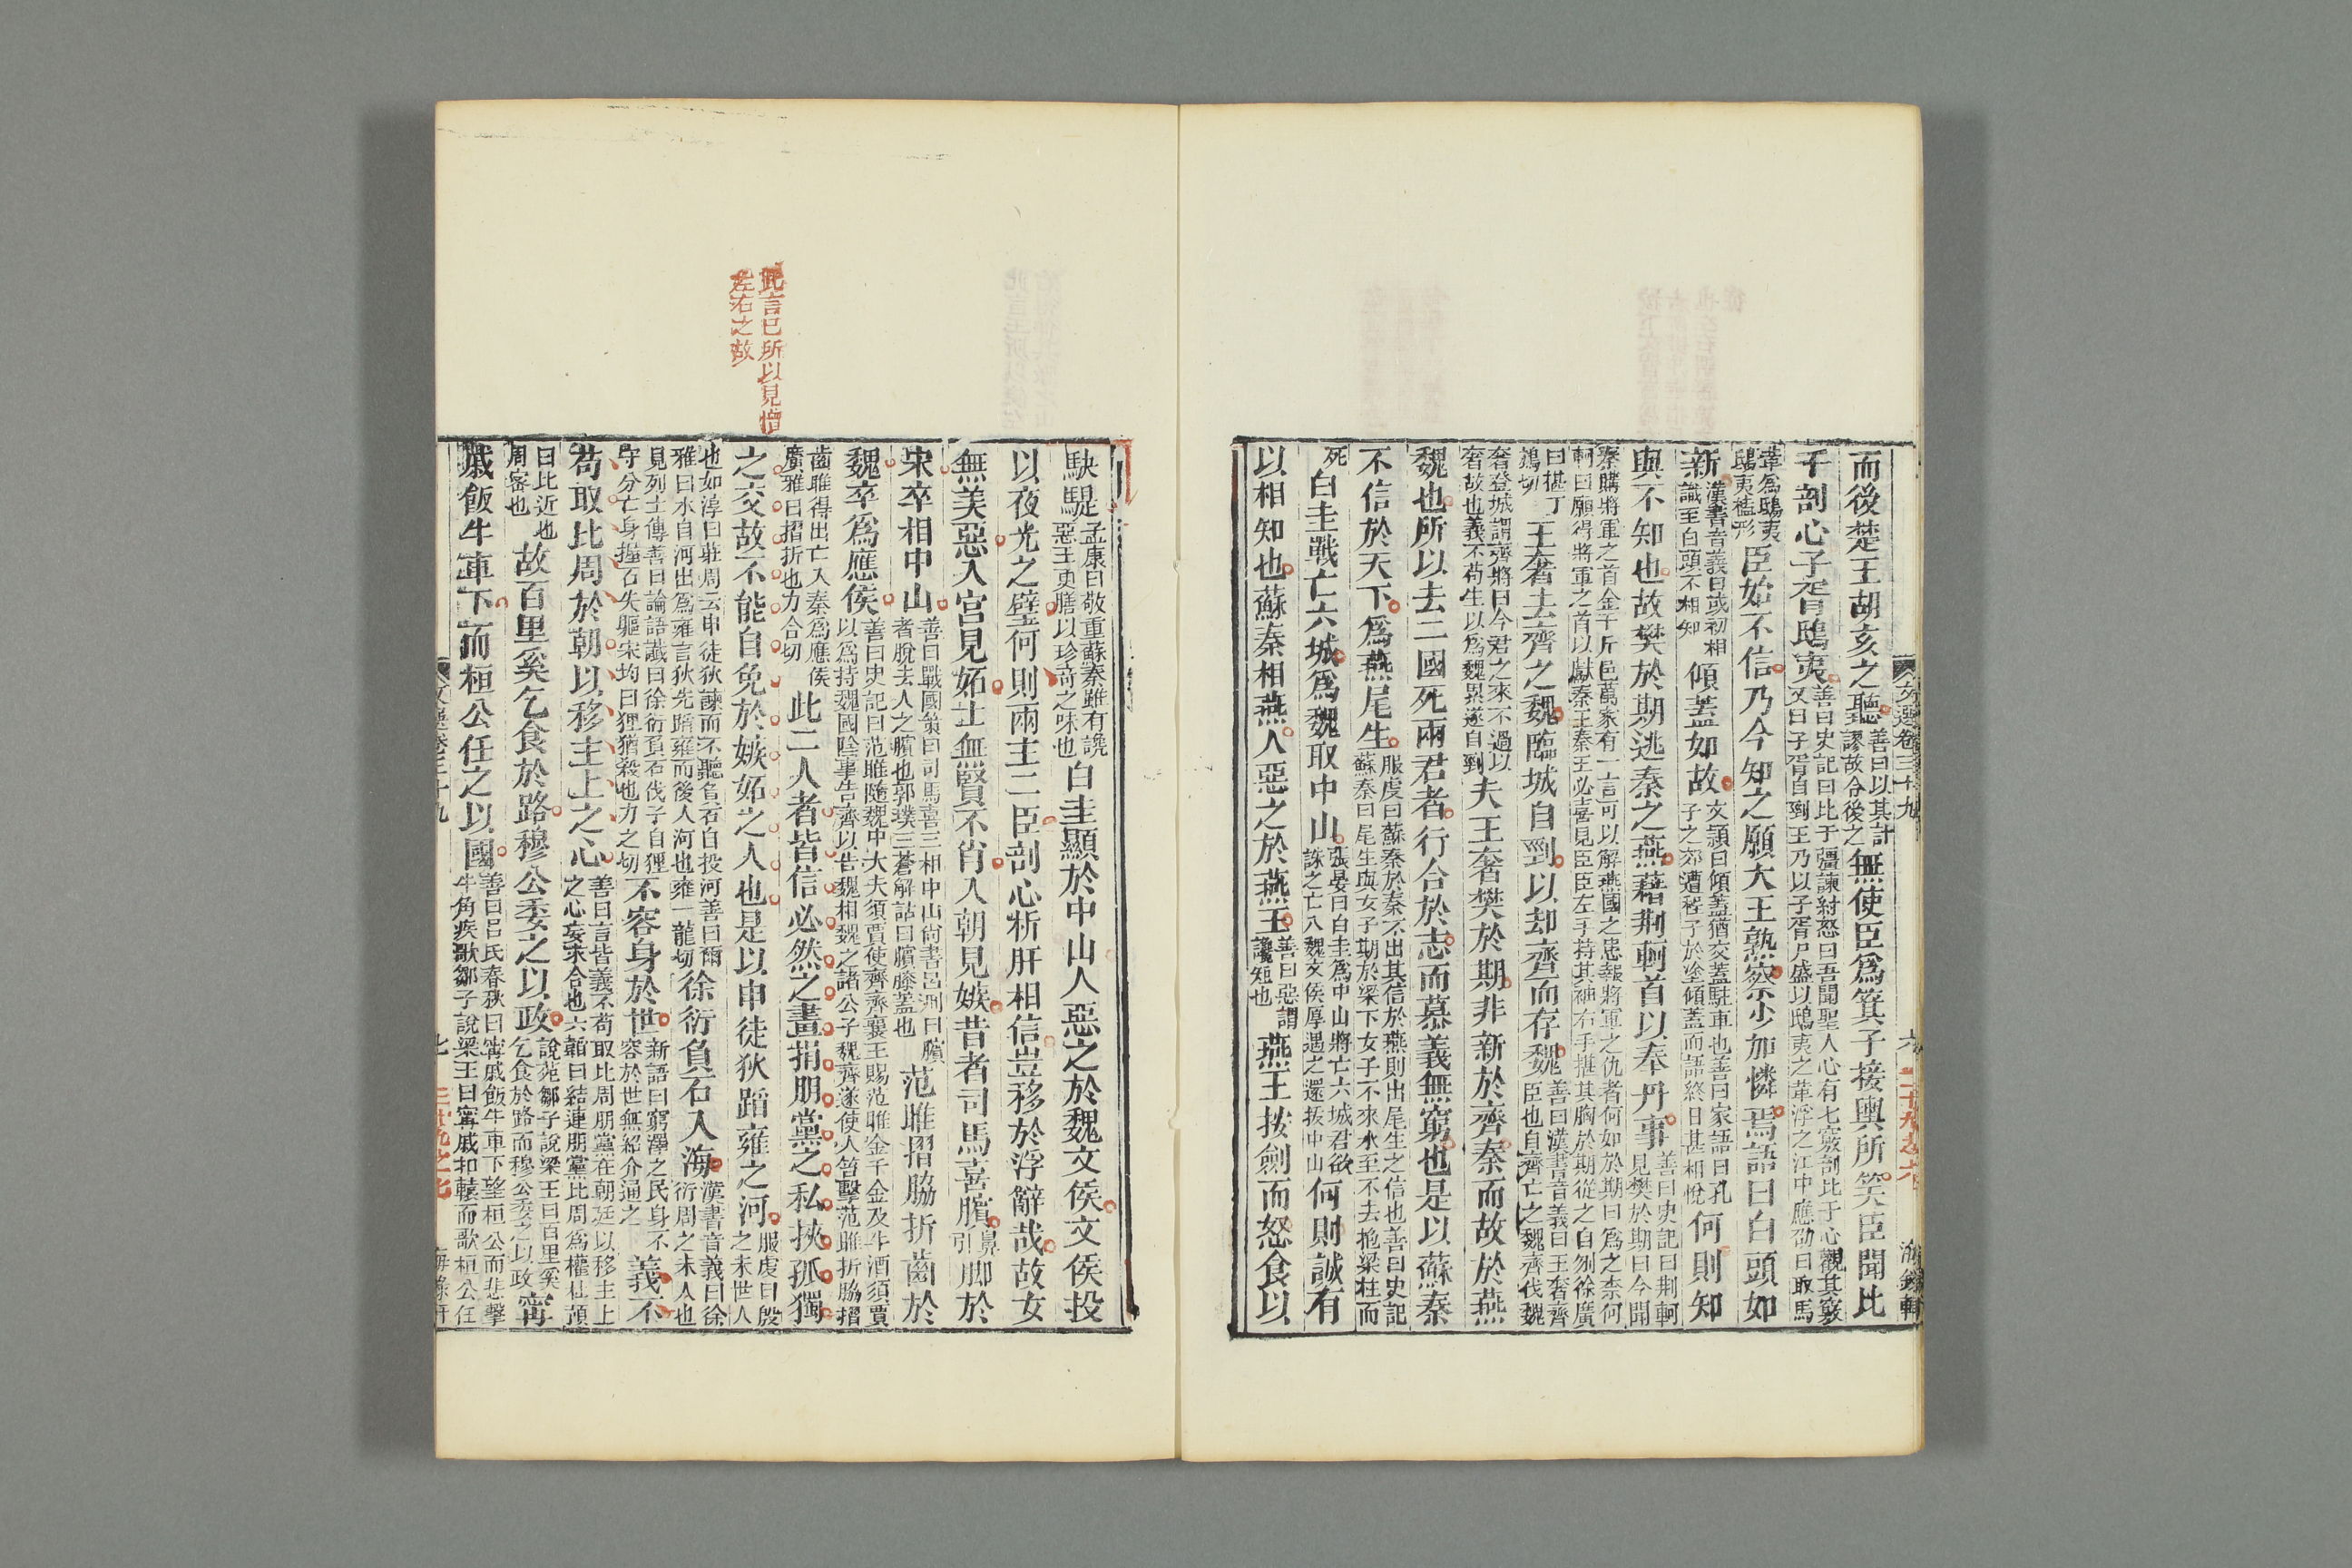 文選卷三十九 六 二十九之六 海錄軒
而後楚王胡亥之聽善曰以其計謬故令後之無使臣爲箕子接輿所笑臣聞比
干剖心子胥鴟夷善曰史記曰比干彊諫紂怒曰吾聞聖人心有七竅剖比干心觀其竅又曰子胥自剄王乃以子胥尸盛以鴟夷之革浮之江中應劭曰取馬
革爲鴟夷鴟夷榼形臣始不信乃今知之願大王熟察少加憐焉語曰白頭如
新漢書音義曰或初相識至白頭不相知傾蓋如故文頴曰傾蓋猶交蓋駐車也善曰家語曰孔子之郯遭程子於塗傾蓋而語終日甚相悅何則知
與不知也故樊於期逃秦之燕藉荆軻首以奉丹事善曰史記曰荆軻見樊於期曰今聞
秦購將軍之首金千斤邑萬家有一言可以解燕國之患報將軍之仇者何如於期曰爲之柰何軻曰願得將軍之首以獻秦王秦王必喜見臣臣左手持其袖右手揕其胸於期從之自刎徐廣
曰揕丁鴆切王奢去齊之魏臨城自剄以却齊而存魏善曰漢書音義曰王奢齊臣也自齊亡之魏齊伐魏
奢登城謂齊將曰今君之來不過以奢故也義不苟生以爲魏累遂自剄夫王奢樊於期非新於齊秦而故於燕
魏也所以去二國死兩君者行合於志而慕義無窮也是以蘇秦
不信於天下爲燕尾生服虔曰蘇秦於秦不出其信於燕則出尾生之信也善曰史記蘇秦曰尾生與女子期於梁下女子不來水至不去抱梁柱而
死白圭戰亡六城爲魏取中山張晏曰白圭爲中山將亡六城君欲誅之亡入魏文侯厚遇之還拔中山何則誠有
以相知也蘇秦相燕人惡之於燕王善曰惡謂讒短也燕王按劍而怒食以
此言已所以見憎
左右之故
駃騠孟康曰敬重蘇秦雖有讒惡王更膳以珍奇之味也白圭顯於中山人惡之於魏文侯文侯投
以夜光之璧何則兩主二臣剖心析肝相信豈移於浮辭哉故女
無美惡入宮見妬士無賢不肖入朝見嫉昔者司馬喜臏鼻引脚於
宋卒相中山善曰戰國策曰司馬喜三相中山尙書呂刑曰臏者脫去人之臏也郭璞三蒼解詁曰臏膝蓋也范睢摺脇折齒於
魏卒爲應侯善曰史記曰范睢隨魏中大夫須賈使齊齊襄王賜范睢金千金及牛酒須賈以爲持魏國陰事告齊以告魏相魏之諸公子魏齊遂使人笞擊范睢折脇摺
齒睢得出亡入秦爲應侯廣雅曰摺折也力合切此二人者皆信必然之畫捐朋黨之私挾孤獨
之交故不能自免於嫉妬之人也是以申徒狄蹈雍之河服虔曰殷之末世人
也如淳曰莊周云申徒狄諫而不聽負石自投河善曰爾雅曰水自河出爲雍言狄先蹈雍而後入河也雍一龍切徐衍負石入海漢書音義曰徐衍周之末人也
見列士傳善曰論語讖曰徐衍負石伐子自狸守分亡身握石失軀宋均曰狸猶殺也力之切不容身於世新語曰窮澤之民身不容於世無紹介通之義不
苟取比周於朝以移主上之心善曰言皆義不苟取比周朋黨在朝廷以移主上之心妄求合也六韜曰結連朋黨比周爲權杜預
曰比近也周密也故百里奚乞食於路穆公委之以政說苑鄒子說梁王曰百里奚乞食於路而穆公委之以政甯
戚飯牛車下而桓公任之以國善曰呂氏春秋曰甯戚飯牛車下望桓公而悲擊牛角疾歌鄒子說梁王曰甯戚扣轅而歌桓公任
文選卷三十九 七 三十九之七 海錄軒